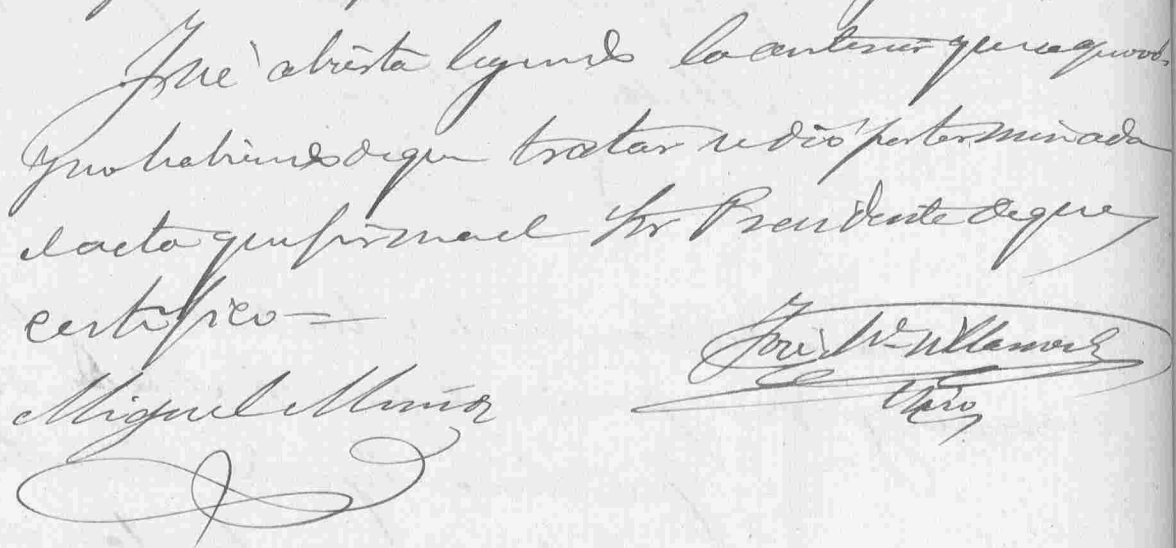 Fué abierta leyendo la anterior que se aprovó
y no habiendo de que tratar se dió por terminada
el acta que firma el Sor Presidente de que
certifico=
José Mª Villanova
Miguel Muñoz